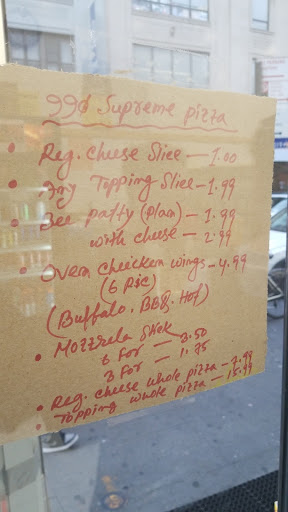 99¢ Supreme pizza
• Reg. cheese Slice — 1.00
• Any Topping Slice - 1.99
• Bee patty (plan) — 1.99
with cheese — 2.99
• Oven chicken wings - 4.99
(6 Psc)
(Buffalo. BBQ. Hot)
• Mozzrela Stick
6 for — 3.50
3 for — 1.75
• Reg. cheese whole pizza — 7.99
• Topping whole pizza — 15.99